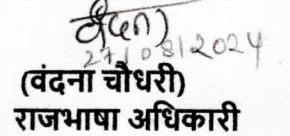 वंदना
27/08/2024
(वंदना चौधरी)
राजभाषा अधिकारी